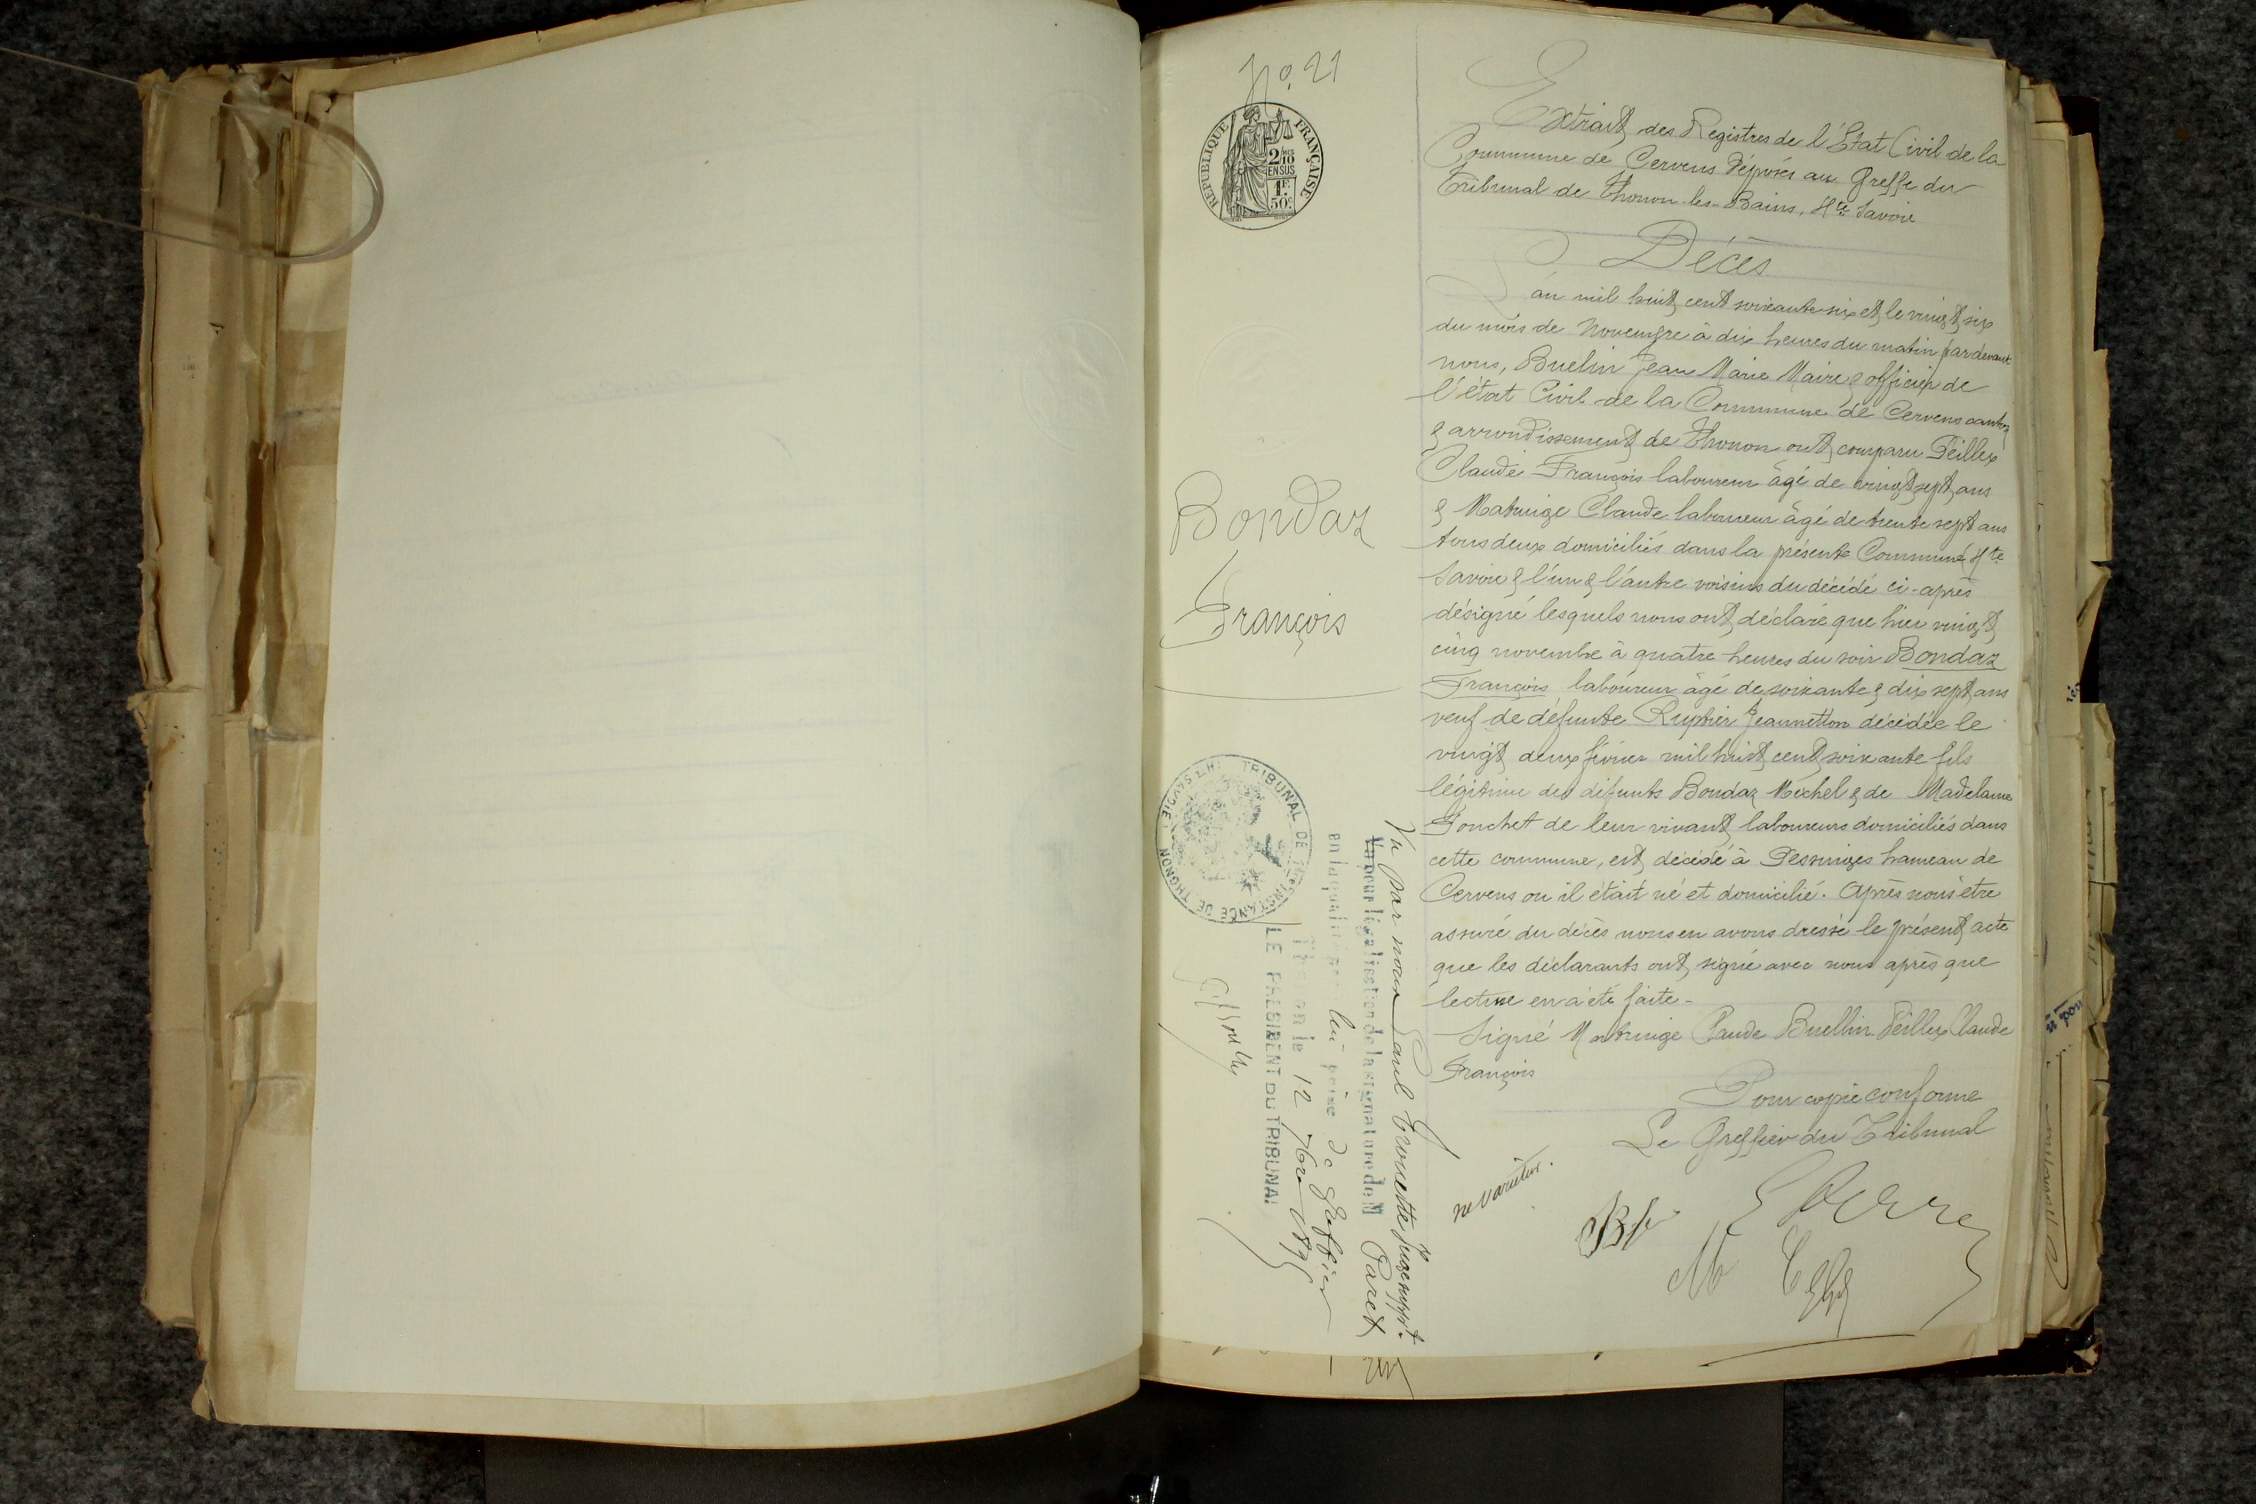 No. 21
REPUBLIQUE FRANÇAISE
2/10
EN SUS
1F.
50c.
Extrait des Registres de l'Etat Civil de la
Commune de Cervens déposés au Greffe du
Tribunal de Thonon-les-Bains, Hte Savoie
Décès
L'an mil huit cent soixante six et le vingt six
du mois de Novembre à dix heures du matin par devant
nous, Buelin Jean Marie Maire & officier de
l'état Civil de la Commune de Cervens canton
& arrondissement de Thonon ont comparu Peillex
Claude François laboureur âgé de vingt sept ans
& Matringe Claude laboureur âgé de trente sept ans
tous deux domiciliés dans la présente Commune Hte
Savoie & l'un & l'autre voisins du décédé ci-après
désigné lesquels nous ont déclaré que hier vingt
cinq novembre à quatre heures du soir Bondaz
François laboureur âgé de soixante & dix sept ans
veuf de défunte Ruptier Jeannetton décédée le
vingt deux février mil huit cent soixante fils
légitime des défunts Bondaz Michel & de Madelaine
Fouchet de leur vivant laboureurs domiciliés dans
cette commune, est décédé à Pessinges hameau de
Cervens ou il était né et domicilié. Après nous être
assuré du décès nous en avons dressé le présent acte
que les déclarants ont signé avec nous après que
lecture en a été faite-
Signé Matringe Claude Buellin Peillex Claude
François
Pour copie conforme
Le Greffier du Tribunal
ne varietur.
Bondaz
François
TRIBUNAL DE 1re INSTANCE DE THONON
Vu par nous Paul Trouette juge suppt.
Vu pour légalisation de la signature de M Paret
en la qualité de greffier
Thonon le 12 7bre 1895
LE PRESIDENT DU TRIBUNAL